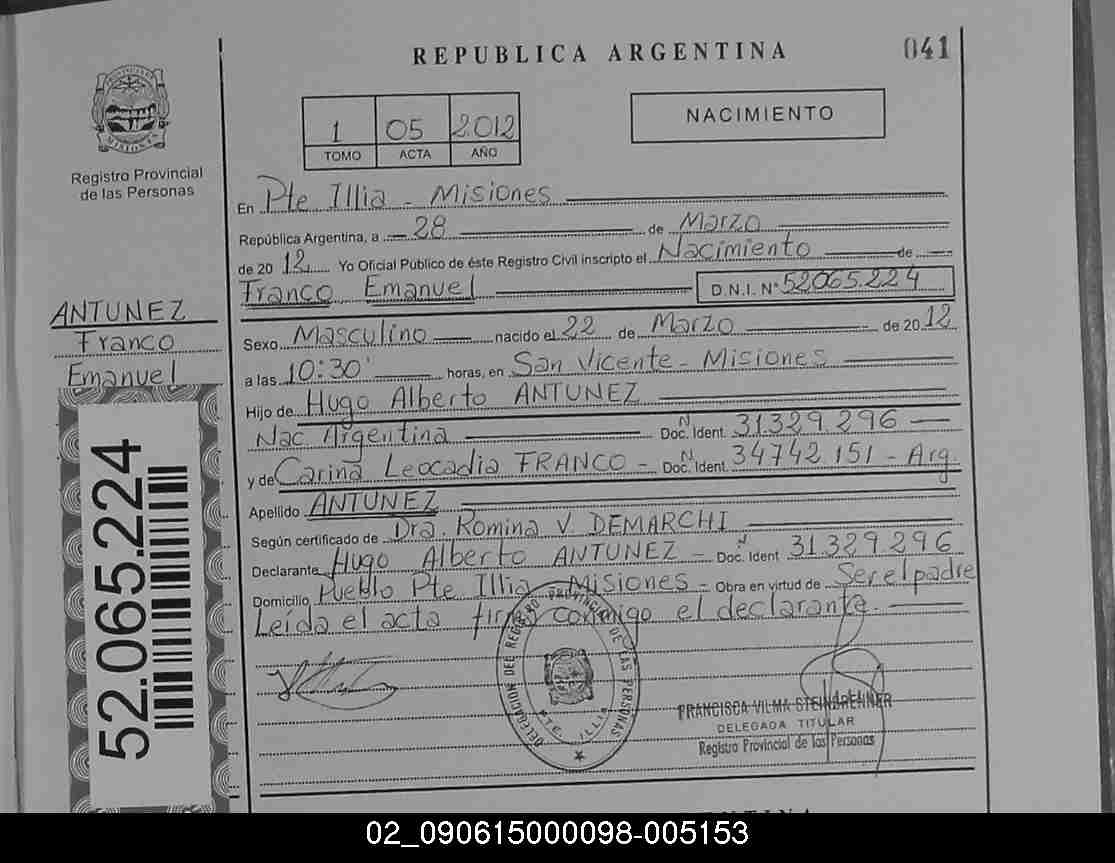 REPUBLICA ARGENTINA
041
PROVINCIA DE
MISIONES
Registro Provincial
de las Personas
1 05 2.012
TOMO ACTA AÑO
NACIMIENTO
En Pte Illia - Misiones
República Argentina, a 28 de Marzo
de 2012 Yo Oficial Público de éste Registro Civil inscripto el Nacimiento de
Franco Emanuel D.N.I. N° 52065.224
ANTUNEZ
Franco
Emanuel
52.065.224
Sexo Masculino nacido el 22 de Marzo de 2012
a las 10:30' horas, en San Vicente - Misiones
Hijo de Hugo Alberto ANTUNEZ
Nac. Argentina Doc. Ident. N 31.329.296
y de Carina Leocadia FRANCO - Doc. Ident. N 34742.151 - Arg.
Apellido ANTUNEZ
Según certificado de Dra. Romina V. DEMARCHI
Declarante Hugo Alberto ANTUNEZ - Doc. Ident N 31.329.296
Domicilio Pueblo Pte Illia - Misiones - Obra en virtud de Ser el padre
Leída el acta firma conmigo el declarante.
DELEGACION DEL REGISTRO PROVINCIAL DE LAS PERSONAS
PTE. ILLIA
FRANCISCA VILMA STEINBRENNER
DELEGADA TITULAR
Registro Provincial de las Personas
02_090615000098-005153